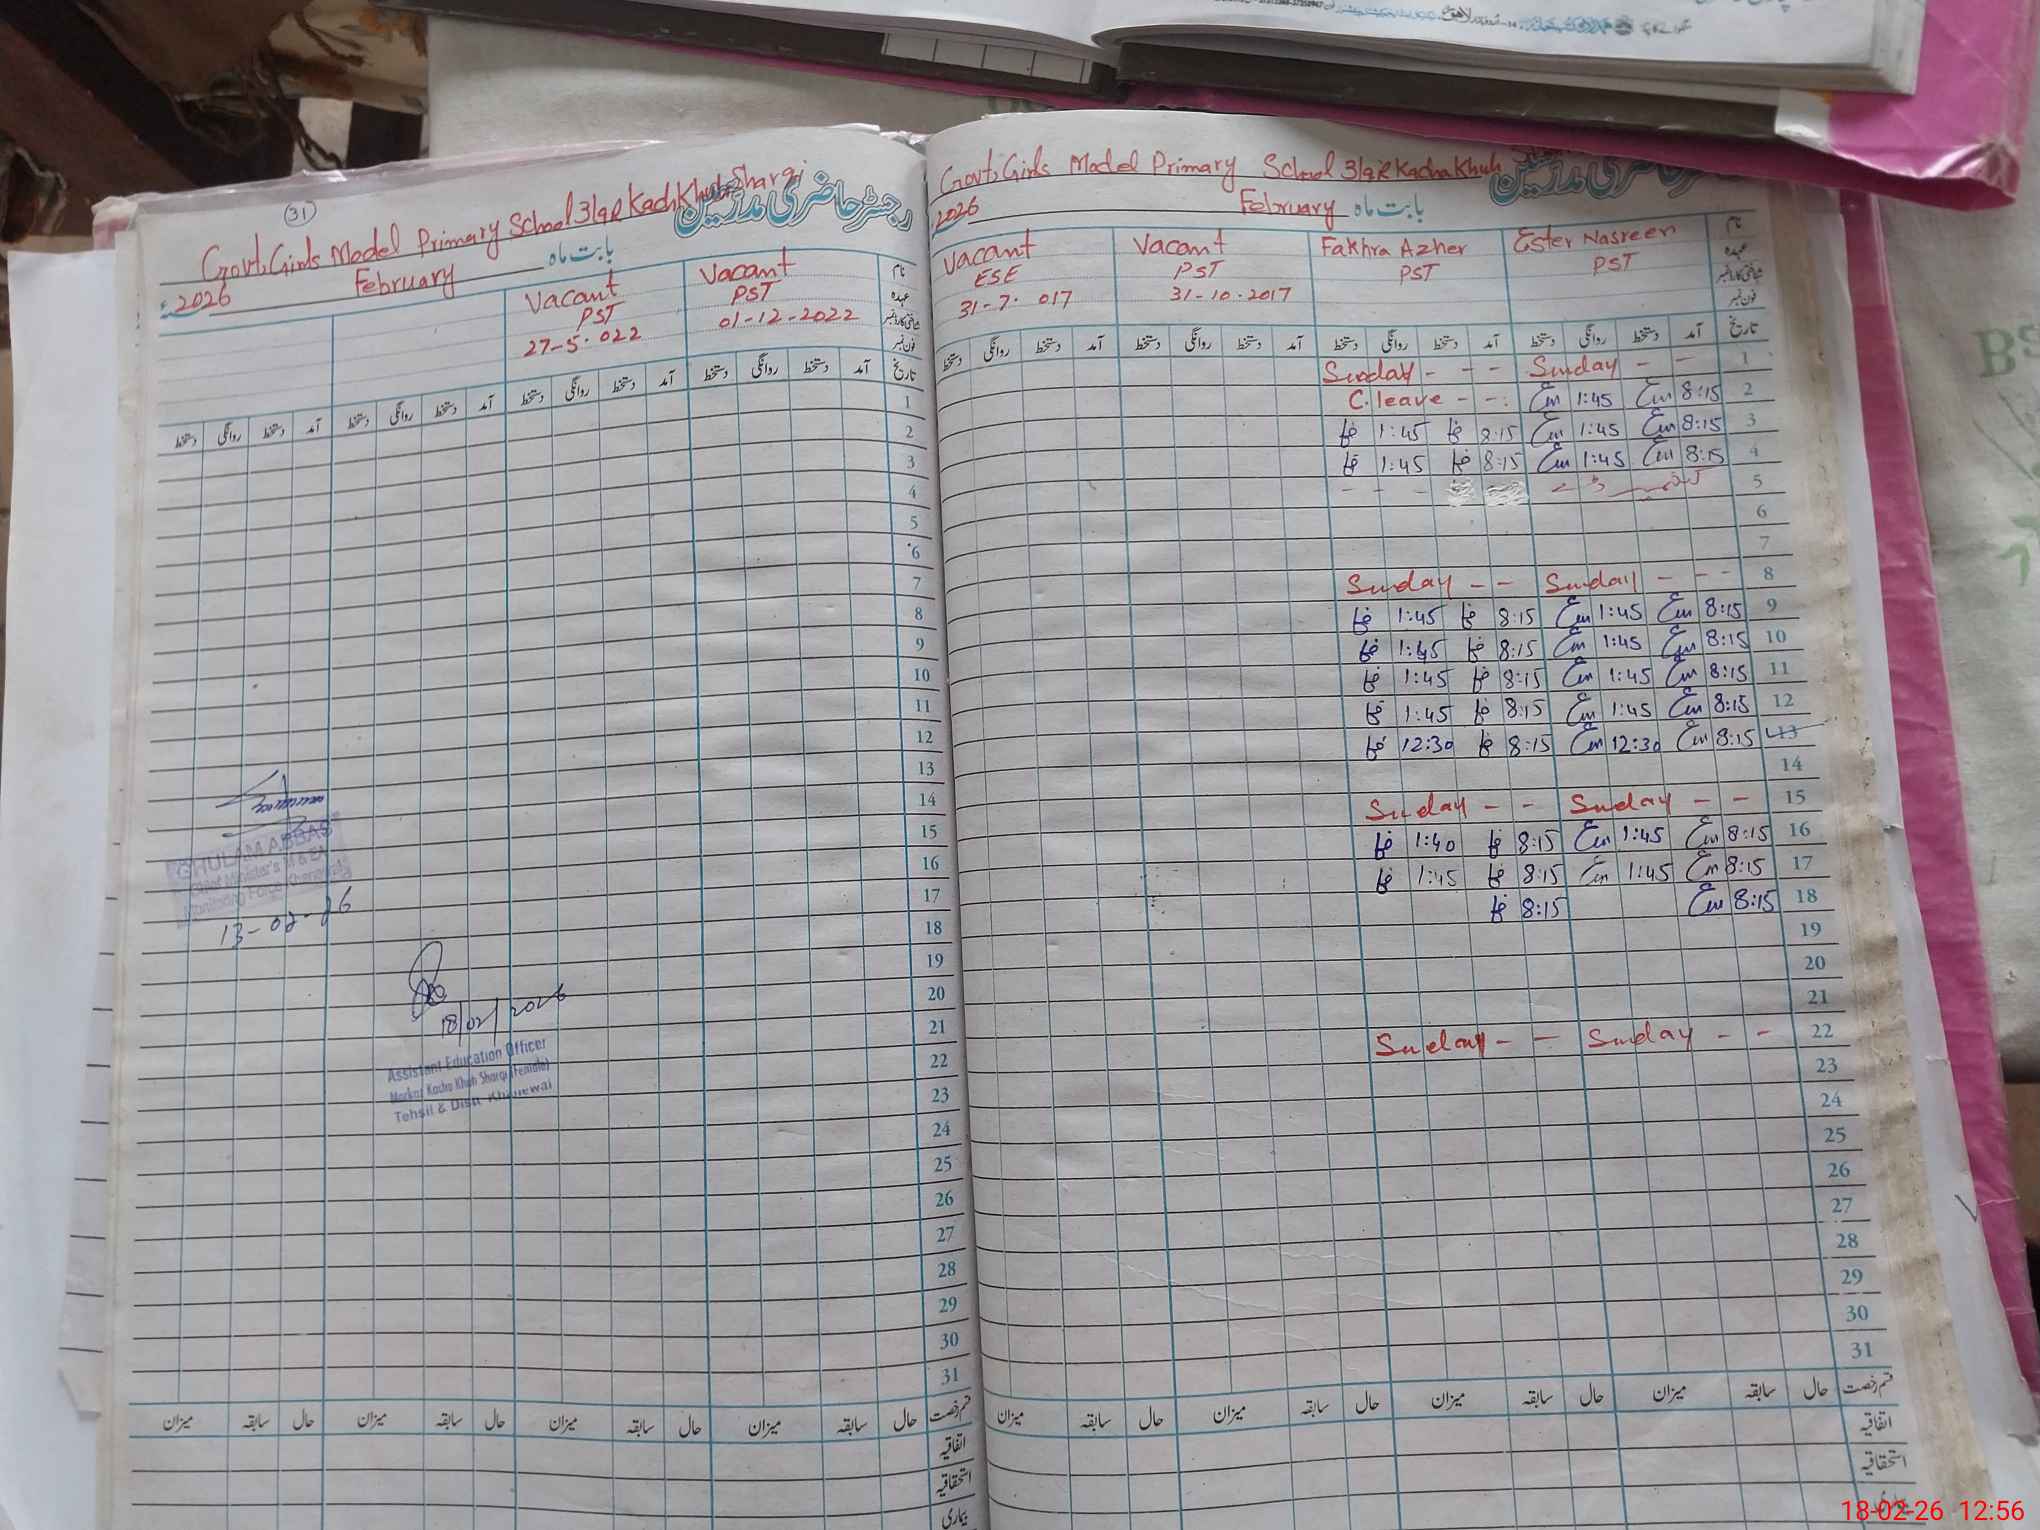 31
Govt; Girls Model Primary School 3/9R Kacha Khuh Sharqi
رجسٹر حاضری مدرسین
2026 February بابت ماہ
Vacant PST 27-5-022
Vacant PST 01-12-2022
نام
عہدہ
شناختی کارڈ نمبر
فون نمبر
تاریخ آمد دستخط روانگی دستخط آمد دستخط روانگی دستخط آمد دستخط روانگی دستخط آمد دستخط روانگی دستخط
1
2
3
4
5
6
7
8
9
10
11
12
13
14
15
16
17
18
19
20
21
22
23
24
25
26
27
28
29
30
31
GHULAM ABBAS
Chief Minister's M & EA
Monitoring Force Khanewal
13-02-26
18/02/2026
Assistant Education Officer
Markaz Kacha Khuh Sharqi (Female)
Tehsil & Distt Khanewal
قسم رخصت حال سابقہ میزان حال سابقہ میزان حال سابقہ میزان حال سابقہ میزان
اتفاقیہ
استحقاقیہ
بیماری
Govt; Girls Model Primary School 3/9R Kacha Khuh
رجسٹر حاضری مدرسین
2026 February بابت ماہ
Vacant ESE 31-7-017
Vacant PST 31-10-2017
Fakhra Azher PST
Ester Nasreen PST
نام
عہدہ
شناختی کارڈ نمبر
فون نمبر
تاریخ آمد دستخط روانگی دستخط آمد دستخط روانگی دستخط آمد دستخط روانگی دستخط آمد دستخط روانگی دستخط
Sunday - - - Sunday - - 1
C. leave - - Em 1:45 Em 8:15 2
1:45 8:15 Em 1:45 Em 8:15 3
1:45 8:15 Em 1:45 Em 8:15 4
5
6
7
Sunday - - Sunday - - - 8
1:45 8:15 Em 1:45 Em 8:15 9
1:45 8:15 Em 1:45 Em 8:15 10
1:45 8:15 Em 1:45 Em 8:15 11
1:45 8:15 Em 1:45 Em 8:15 12
12:30 8:15 Em 12:30 Em 8:15 13
14
Sunday - - Sunday - - 15
1:40 8:15 Em 1:45 Em 8:15 16
1:45 8:15 Em 1:45 Em 8:15 17
8:15 Em 8:15 18
19
20
21
Sunday - - Sunday - - 22
23
24
25
26
27
28
29
30
31
قسم رخصت حال سابقہ میزان حال سابقہ میزان حال سابقہ میزان حال سابقہ میزان
اتفاقیہ
استحقاقیہ
بیماری
18-02-26 12:56